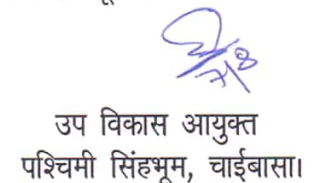 7/8
उप विकास आयुक्त
पश्चिमी सिंहभूम, चाईबासा।